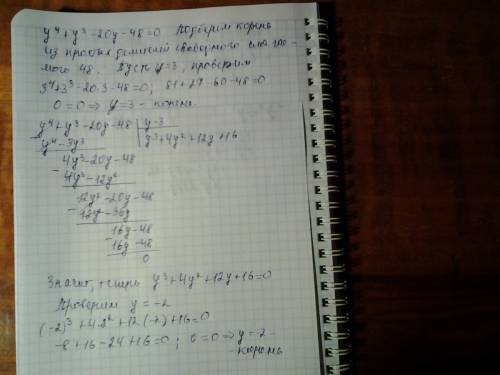 y⁴+y³-20y-48=0 Подберём корень
из простых делителей свободного
48. Пусть y=3, проверим
3⁴+3³-20·3-48=0; 81+27-60-48=0
0=0 ⇒ y=3 - корень.
y⁴+y³-20y-48 | y-3
y⁴-3y³ | y³+4y²+12y+16
- 4y³-20y-48
4y³-12y²
- 12y²-20y-48
12y²-36y
- 16y-48
16y-48
0
Значит, теперь y³+4y²+12y+16=0
Проверим y=-2
(-2)³+4·2²+12(-2)+16=0
-8+16-24+16=0; 0=0 ⇒ y=-2 -
- корень